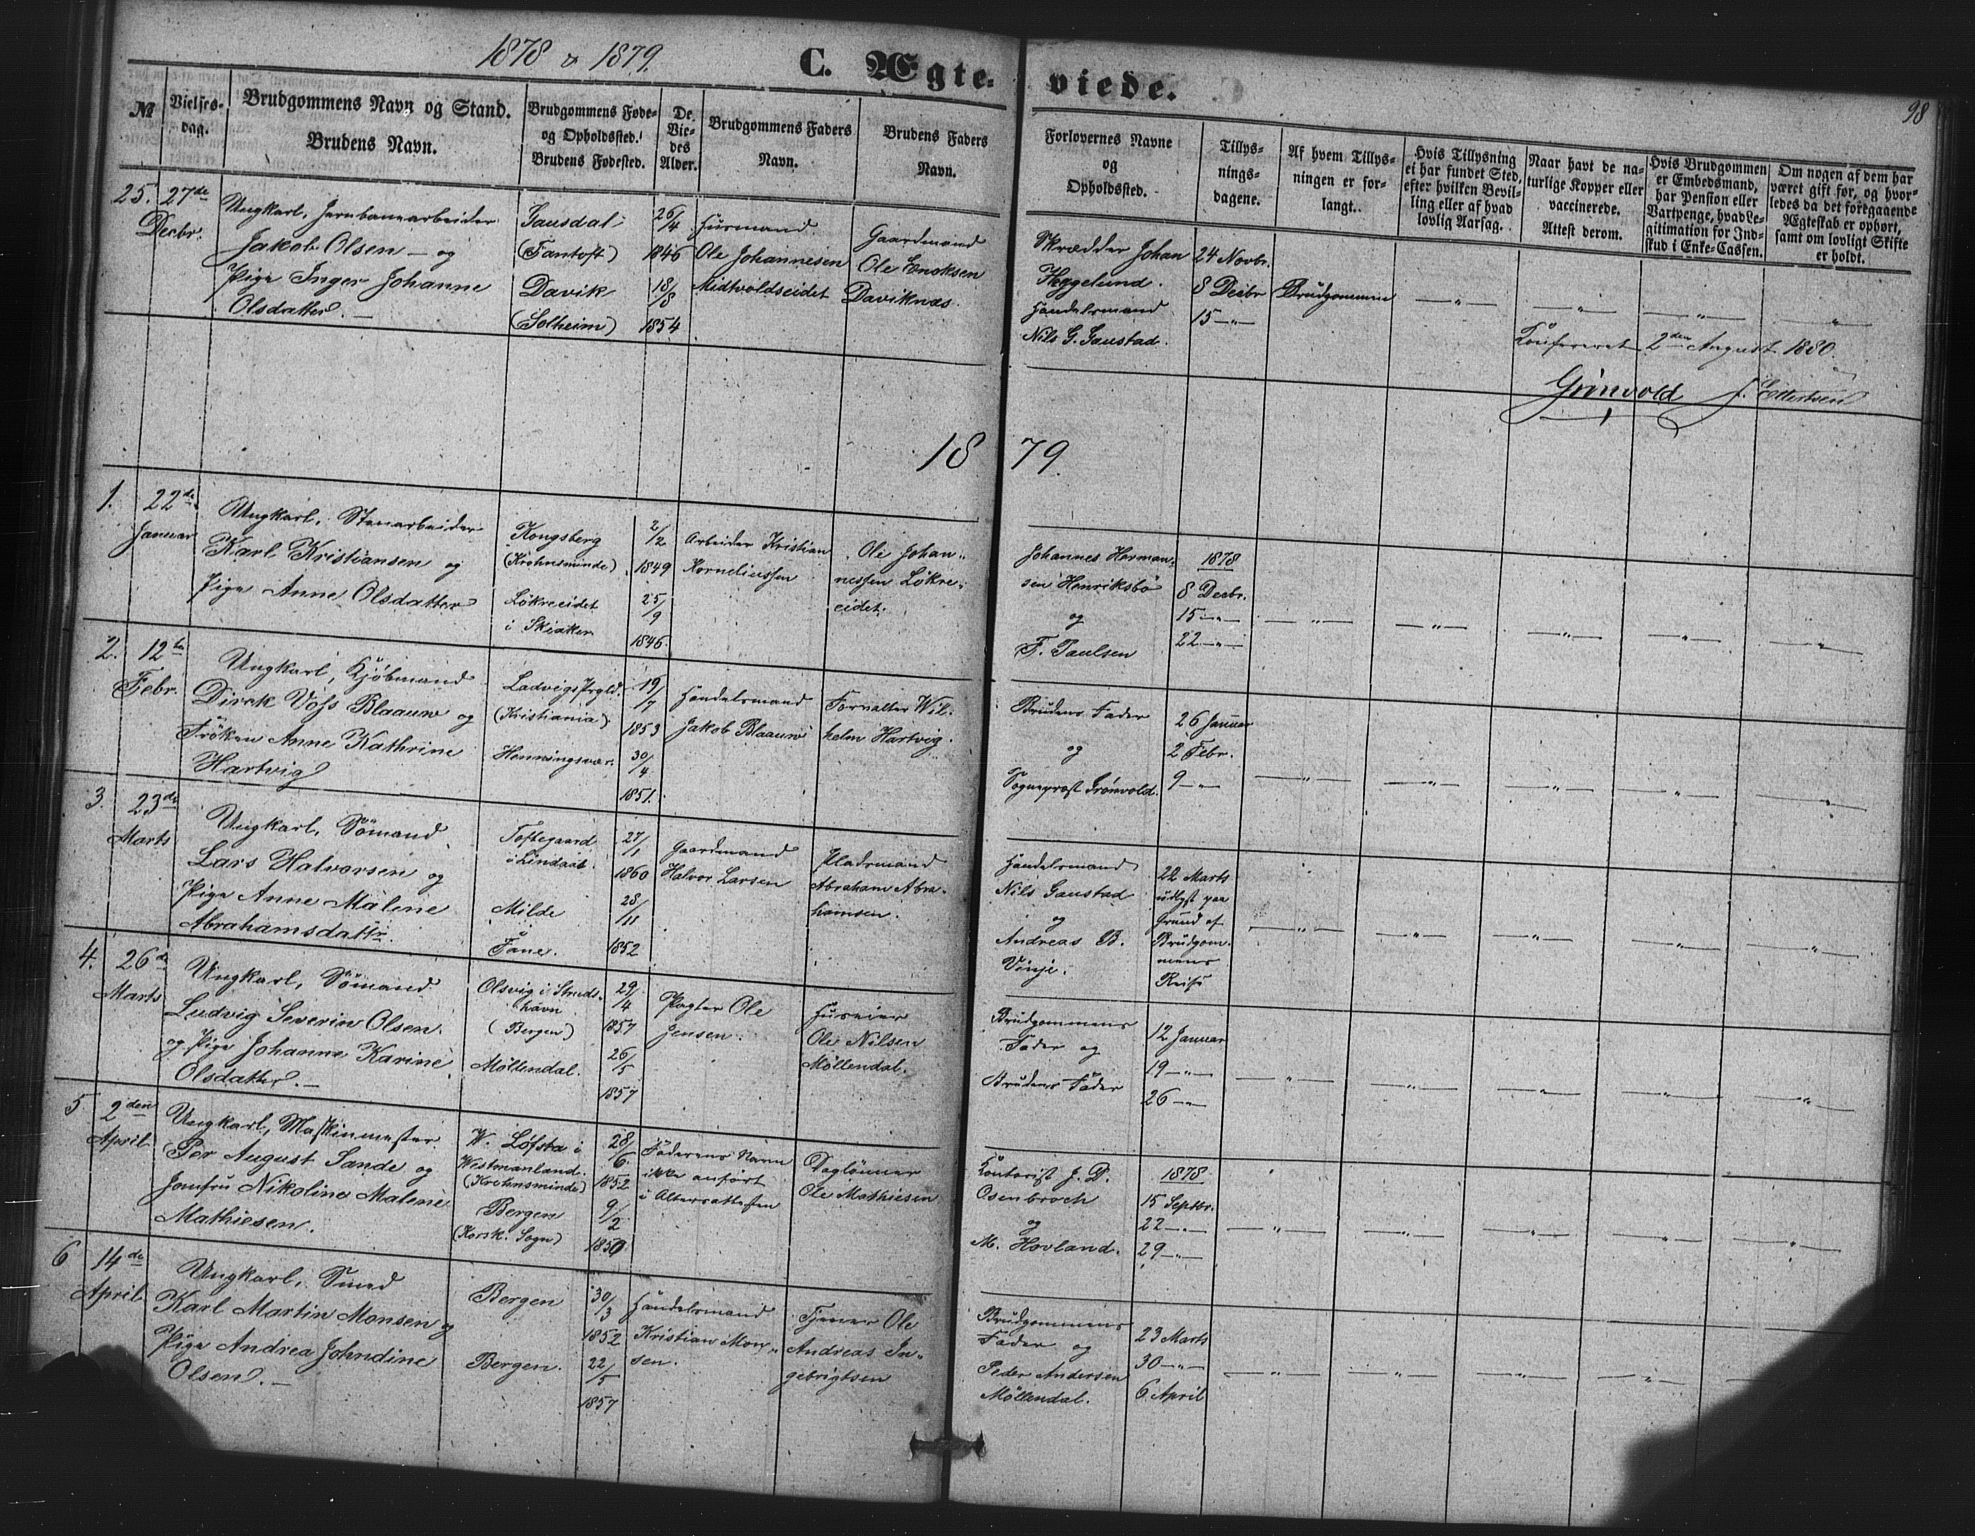 1878 & 1879.
C. Ægteviede.
98
№
Vielses-
dag.
Brudgommens Navn og Stand.
Brudens Navn.
Brudgommens Føde-
og Opholdssted.
Brudens Fødested.
De
Vie-
des
Alder.
Brudgommens Faders
Navn.
Brudens Faders
Navn.
Forlovernes Navne
og
Opholdssted.
Tillys-
nings-
dagene.
Af hvem Tillys-
ningen er for-
langt.
Hvis Tillysning
ei har fundet Sted,
efter hvilken Bevil-
ling eller af hvad
lovlig Aarsag.
Naar havt de na-
turlige Kopper eller
vaccinerede.
Attest derom.
Hvis Brudgommen
er Embedsmand,
har Pension eller
Vartpenge, hvad Le-
gitimation for Ind-
skud i Enke-Cassen.
Om nogen af dem har
været gift før, og hvor-
ledes da det foregaaende
Ægteskab er ophørt,
samt om lovligt Skifte
er holdt.
25.
27de
Decbr.
Ungkarl, Jernbanearbeider
Jakob Olsen — og
Pige Inger Johanne
Olsdatter. —
Gausdal
(Fantoft)
Davik
(Solheim)
26/4
1846
18/8
1854
Husmand
Ole Johannesen
Midtvoldseidet
Gaardmand
Ole Enoksen
Daviknæs.
Skrædder Johan
Heggelund.
Handelsmand
Nils G. Gaustad.
24 Novbr.
8 Decbr
15 — "
Brudgommen
— " —
— " —
— " —
"
Konfereret 2den August 1880.
Grönvold
18 79.
1.
22de
Januar
Ungkarl, Stenarbeider
Karl Kristiansen og
Pige Anne Olsdatter
Kongsberg
(Krohnsminde)
Lökreeidet
i Skiaker
2/2
1849
25/9
1846.
Arbeider Kristian
Korneliussen
Ole Johan-
nessen Lökre-
eidet.
Johannes Herman-
sen Henriksbö
og
F. Paulsen
1878
8 Decbr.
15 — "
22 — "
— " —
— " —
— " —
— " —
— " —
2.
12te
Febr.
Ungkarl, Kjöbmand
Dirck Voss Blaauw og
Fröken Anne Kathrine
Hartvig
Ladvigs Prgld.
(Kristiania)
Henningsvær.
19/7
1853
30/4
1851.
Handelsmand
Jakob Blaauw
Forvalter Wil-
helm Hartvig.
Brudens Fader
og
Sogneprest Grönvold.
26 Januar
2 Febr.
9 — "
— " —
— " —
— " —
— " —
— " —
3.
23de
Marts
Ungkarl, Sömand
Lars Halvorsen og
Pige Anne Malene
Abrahamsdattr.
Toftegaard
i Lindaas.
Milde
Fane.
27/1
1860
28/11
1852
Gaardmand
Halvor Larsen
Pladsmand
Abraham Abra-
hamsen.
Handelsmand
Nils Gaustad
og
Andreas B.
Vinje.
22 Marts
udlyst paa
Grund af
Brudgom-
mens
Reise
— " —
— " —
— " —
— " —
— " —
4.
26de
Marts
Ungkarl, Sömand
Ludvig Severin Olsen
og Pige Johanne Karine
Olsdatter. —
Olsvig i Struds-
havn
(Bergen)
Möllendal.
29/4
1857
26/5
1857
Pagter Ole
Jensen.
Huseier
Ole Nilsen
Möllendal.
Brudgommens
Fader og
Brudens Fader
12 Januar
19 — "
26 — "
— " —
— " —
— " —
— " —
— " —
5
2den
April
Ungkarl, Maskinmester
Per August Sande og
Jomfru Nikoline Malene
Mathiesen.
W. Löfsta i
Westmanland.
(Krohnsminde)
Bergen
(Korsk. Sogn)
28/6
1852
9/2
1850
Faderens Navn
ikke anfört
i Altersattesten
Daglönner
Ole Mathiesen
Kontorist J. D.
Osenbroch
og
M. Hovland.
1878
15 Septbr.
22 — "
29 — "
— " —
— " —
— " —
— " —
— " —
6
14de
April
Ungkarl, Smed
Karl Martin Monsen og
Pige Andrea Johndine
Olsen. —
Bergen
Bergen.
30/3
1852
22/5
1857
Handelsmand
Kristian Mon-
sen.
Tjener Ole
Andreas In-
gebrigtsen
Brudgommens
Fader og
Peder Andersen
Möllendal.
23 Marts
30 — "
6 April
— " —
— " —
— " —
— " —
— " —